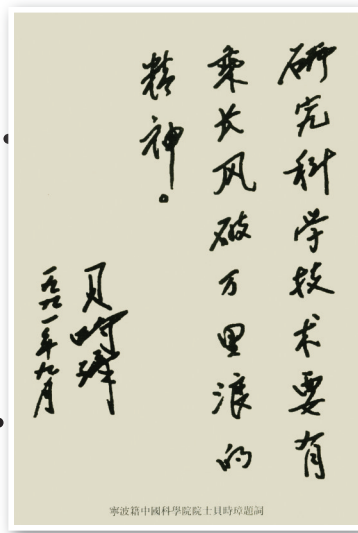 研究科学技术要有
乘长风破万里浪的
精神。
贝时璋
一九九一年九月
寧波籍中國科學院院士貝時璋題詞